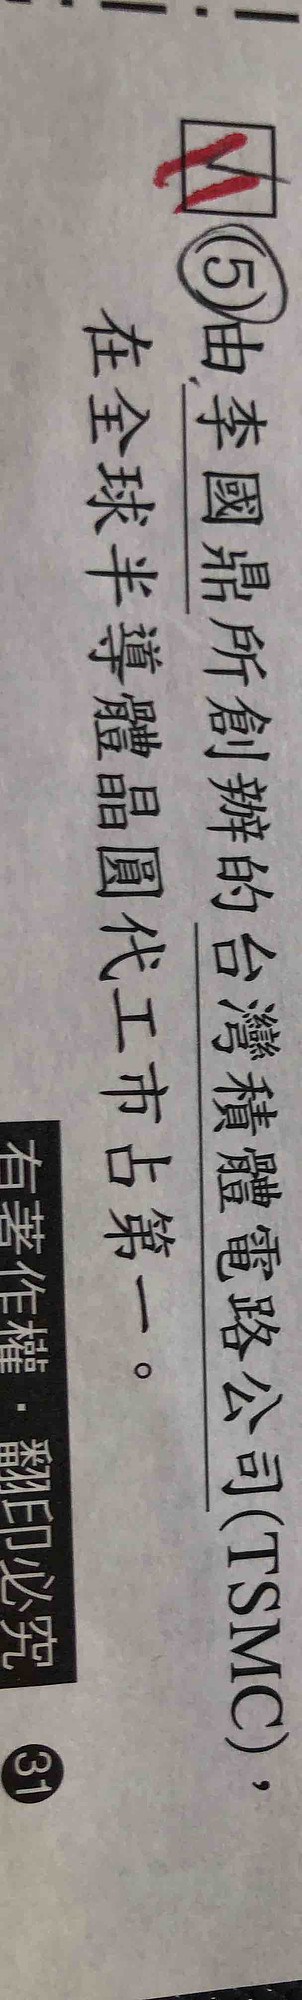 (5)由李國鼎所創辦的台灣積體電路公司(TSMC)，
在全球半導體晶圓代工市占第一。
有著作權・翻印必究
31